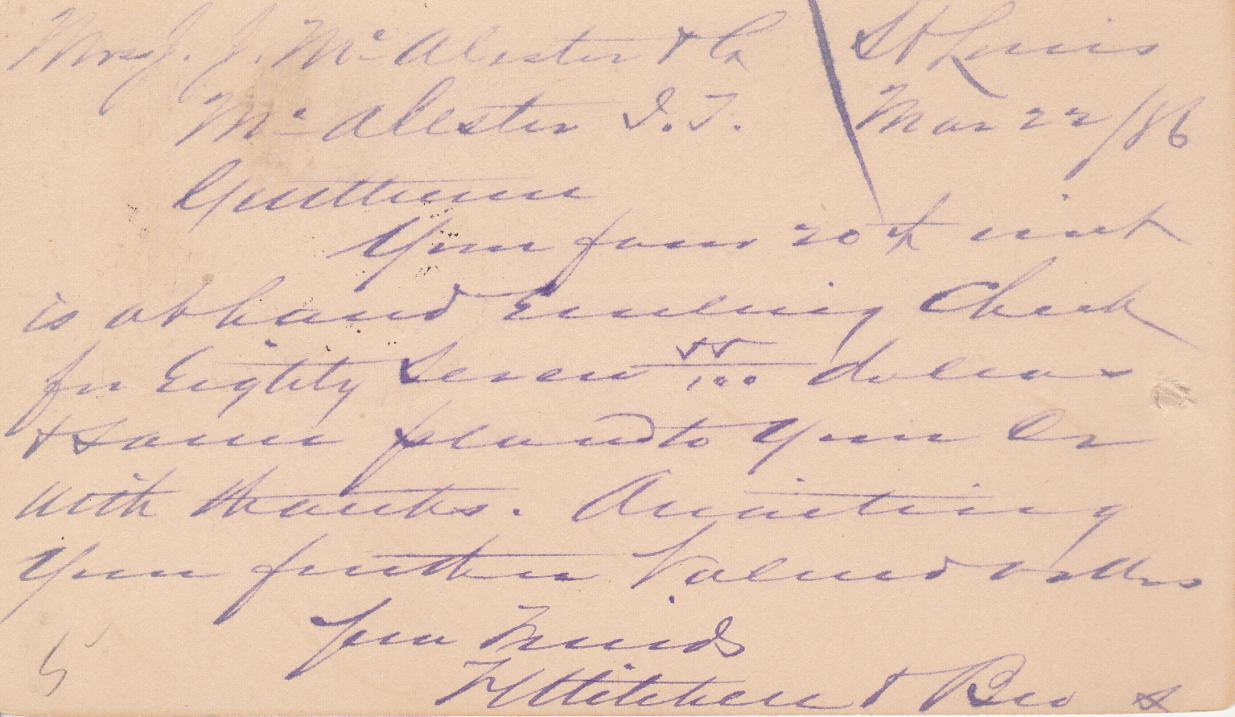 Mess J. J. McAlester & Co St Louis
McAlester I.T. Mar 22/86
Gentlemen
Your favor 20th inst
is at hand Enclosing Check
for Eighty Seven 55/100 dollars
& same placed to Your Cr
with thanks. Awaiting
Your further Valued orders
Your Friends
Mitchell & Bro
5